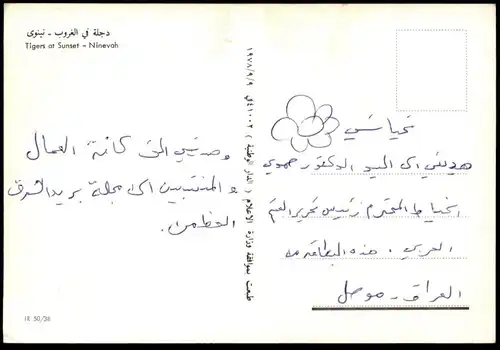 دجلة في الغروب - نينوى
Tigers at Sunset - Ninevah
وصديقي الى كافة العمال
و المنتسبين الى مجلة بريد الشرق
طبعت بموافقة وزارة الاعلام ( الدار الوطنية )
تحياتي
هديتي الى السيد الدكتور
المحترم رئيس تحرير القسم
العربي . هذه البطاقة من
العراق - موصل
IR 50/38